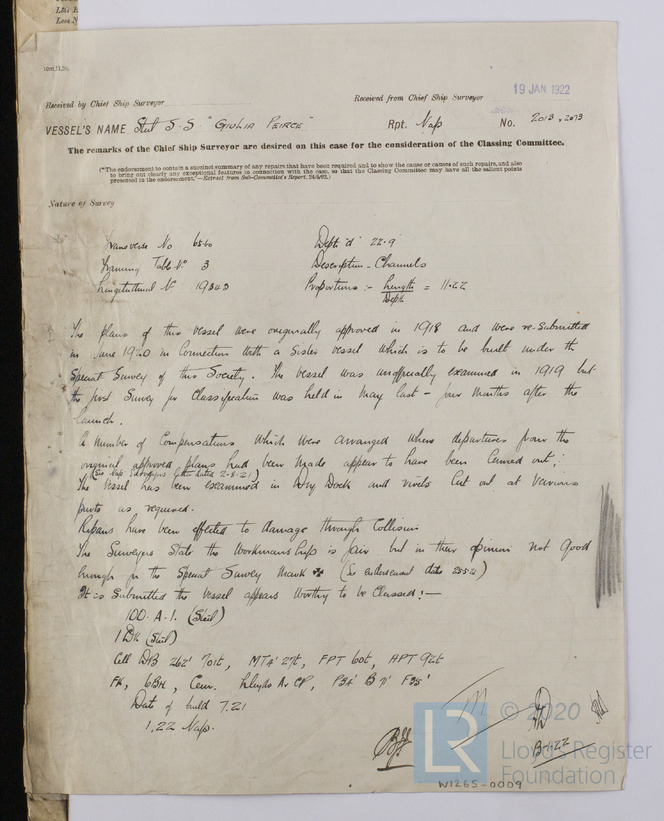 19 JAN 1922
Received by Chief Ship Surveyor
Received from Chief Ship Surveyor
VESSEL'S NAME Steel S.S "GIULIA PEIRCE" Rpt. Nap No. 2013, 2073
The remarks of the Chief Ship Surveyor are desired on this case for the consideration of the Classing Committee.
("The endorsement to contain a succinct summary of any repairs that have been required and to show the cause or causes of such repairs, and also
to bring out clearly any exceptional features in connection with the case, so that the Classing Committee may have all the salient points
presented in the endorsement."—Extract from Sub-Committee's Report,
Nature of Survey
Transverse No Depth "d" 22.9
Framing Table No 3 Description - Channels
Longitudinal No Proportions :- Length / Depth = 11.22
The plans of this vessel were originally approved in 1918 and were re-submitted
in June 1920 in Connection with a Sister vessel which is to be built under the
Special Survey of this Society. The vessel was unofficially examined in 1919 but
the first Survey for Classification was held in May last - four months after the
launch.
A Number of Compensations which were arranged where departures from the
original approved plans had been made appear to have been Carried out;
(See Nap Surveyors letter dated 2-8-21)
The vessel has been examined in Dry Dock and rivets Cut out at various
parts as required.
Repairs have been effected to damage through Collision
The Surveyors State the Workmanship is fair but in their opinion not good
enough for the Special Survey Mark ✠ (See endorsement date)
It is Submitted the vessel appears worthy to be Classed :-
100. A. 1. (Steel)
1 Dk (Steel)
Cell DB 262' 701t, MTA' 27t, FPT 60t, APT 92t
FK, 6BH, Cem. Lloyds A & CP, P34' B 71' F35'
Date of build 7.21
1.22 Nap.
LR
© 2020
Lloyd's Register
Foundation
W1265-0009